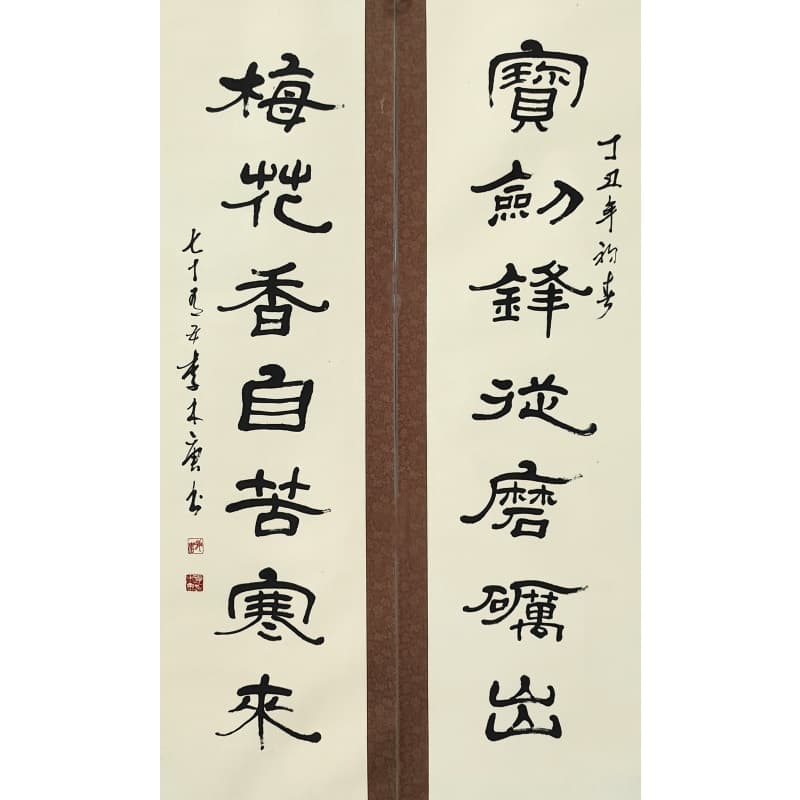 丁丑年初春
寶劍鋒從磨礪出
梅花香自苦寒來
七十有五李木庚书